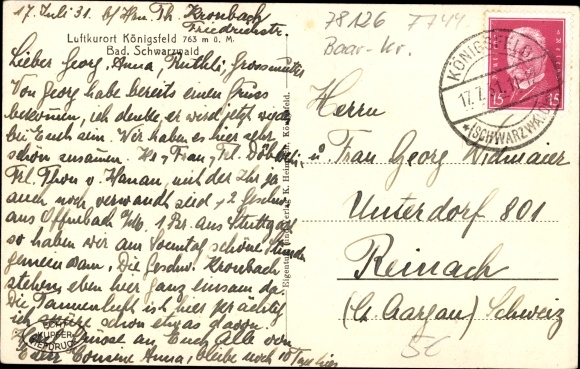 17. Juli 31. b/ Hrn. Th. Kronbach
Friedrichstr.
Luftkurort Königsfeld 763 m ü. M.
Bad. Schwarzwald
Lieber Georg, Anna, Ruthli, Grossmutter
Von Georg habe bereits einen Gruss
bekommen, ich denke er wird jetzt wieder
bei Euch sein. Wir haben es hier sehr
schön zusammen. Hr., Frau, Frl.
Frl. Thon v. Hanau, mit der Ihr ja
auch noch verwandt seid + 2 Geschw.
aus Offenburg 1 Br. aus Stuttgart
so haben wir am Sonntag schöne
gemeinsam. Die Geschw. Kronbach
stehen eben hier ganz einsam da.
Die Tannenluft ist hier prächtig
ich schon etwas davon.
Grüsse an Euch Alle von
Eurer Cousine Anna, bleibe noch 10 Tage hier
ECHT
KUPFER-
TIEFDRUCK
Eigentum und Verlag K. Königsfeld.
78126 F744
Baar-Kr.
KÖNIGSFELD
17.7.31
(SCHWARZWALD)
15 15
Herrn
u. Frau Georg Widmaier
Unterdorf 801
Reinach
(Ct. Aargau) Schweiz
5€